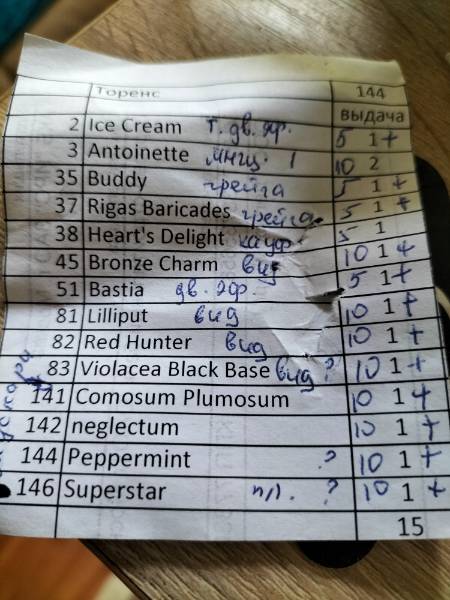 Торенс 144
выдача
2 Ice Cream т. дв. эр. 5 1 +
3 Antoinette мнгц. 1 10 2
35 Buddy грейга 5 1 +
37 Rigas Baricades грейга 5 1 +
38 Heart's Delight кауф. 5 1
45 Bronze Charm вид 10 1 +
51 Bastia дв. эф. 5 1 +
81 Lilliput вид 10 1 +
82 Red Hunter вид 10 1 +
83 Violacea Black Base вид ? 10 1 +
141 Comosum Plumosum 10 1 +
142 neglectum 10 1 +
144 Peppermint ? 10 1 +
146 Superstar пл. ? 10 1 +
15